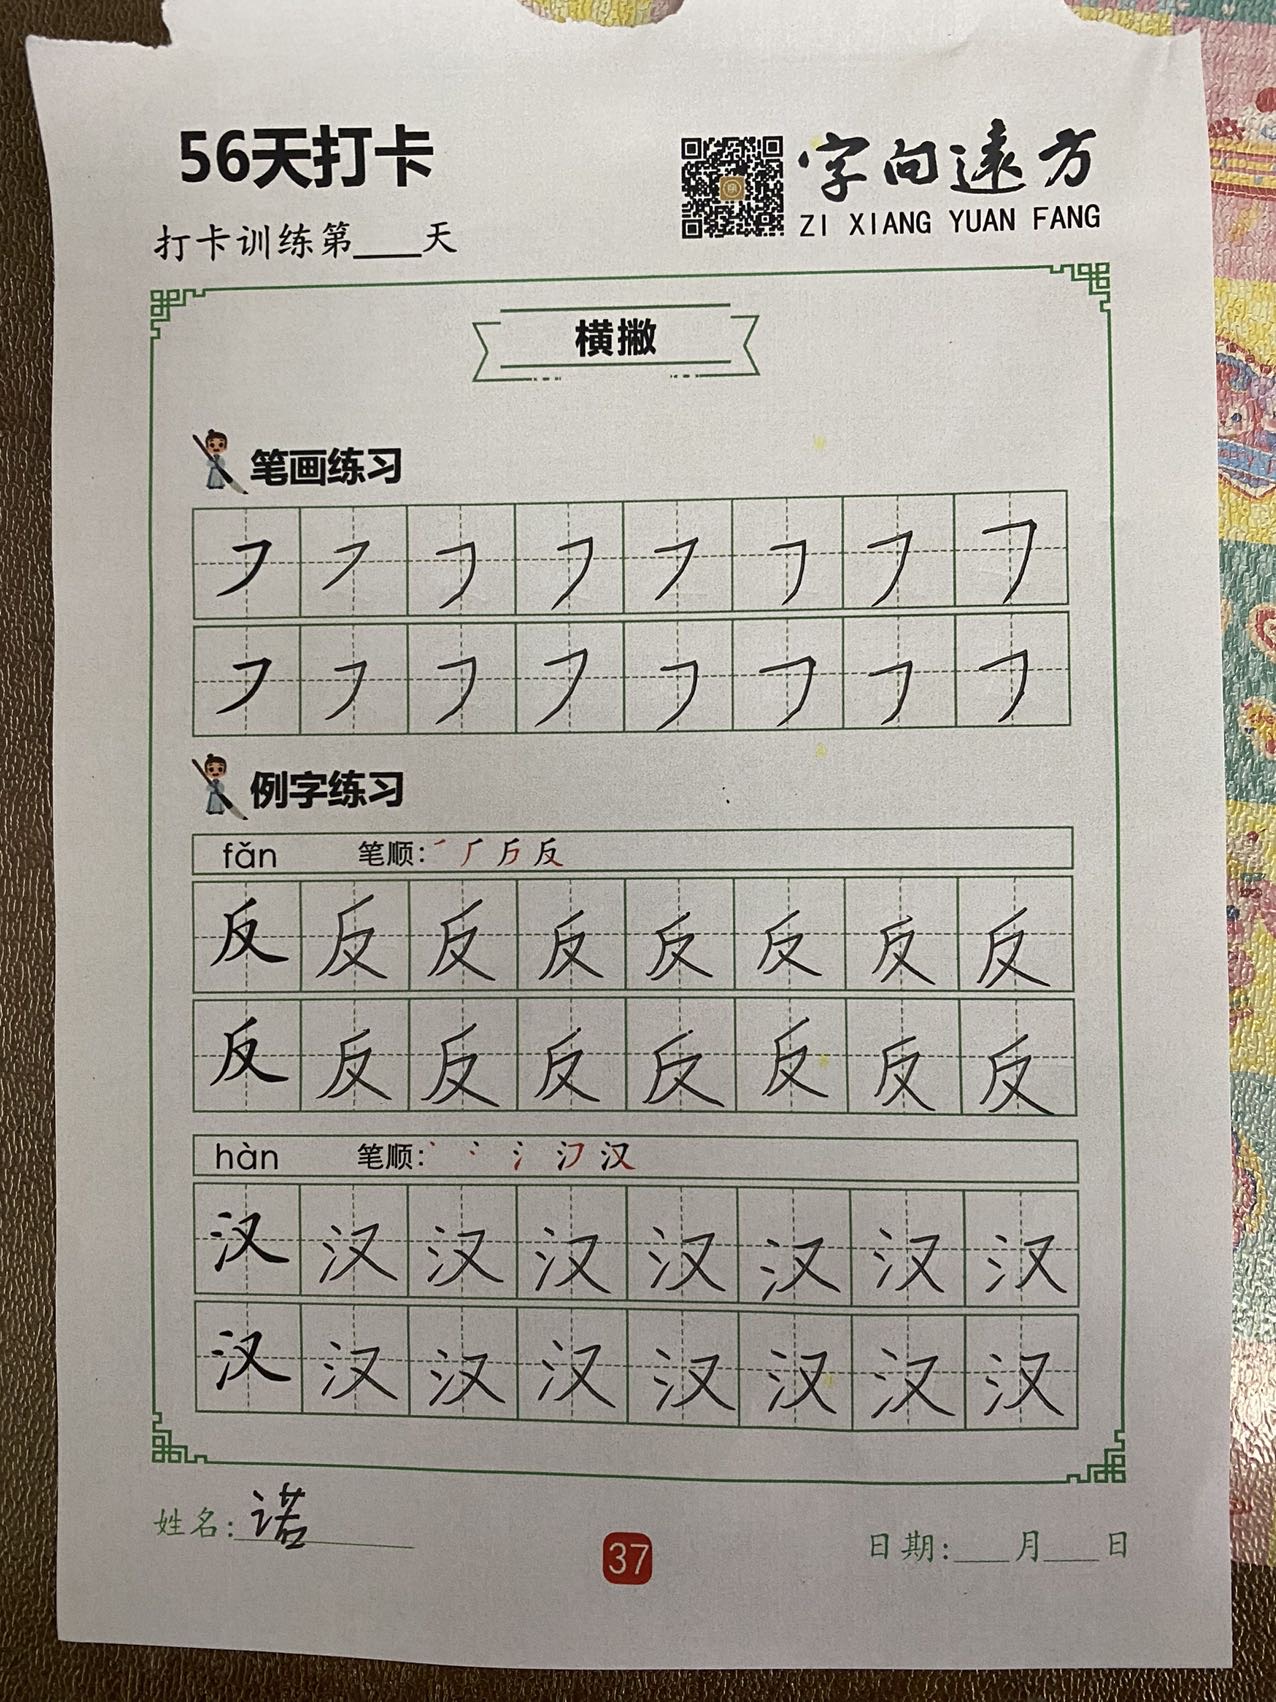 56天打卡
字向遠方
ZI XIANG YUAN FANG
打卡训练第____天
横撇
笔画练习
㇇ ㇇ ㇇ ㇇ ㇇ ㇇ ㇇ ㇇
㇇ ㇇ ㇇ ㇇ ㇇ ㇇ ㇇ ㇇
例字练习
fǎn 笔顺: 反
反 反 反 反 反 反 反 反
反 反 反 反 反 反 反 反
hàn 笔顺: 丶 冫 氵 汉
汉 汉 汉 汉 汉 汉 汉 汉
汉 汉 汉 汉 汉 汉 汉 汉
姓名: 诺
37
日期:____月____日